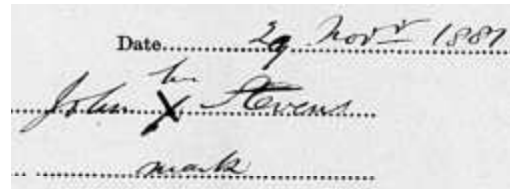 Date 29 Novr 1887
his
John X Stevens
mark